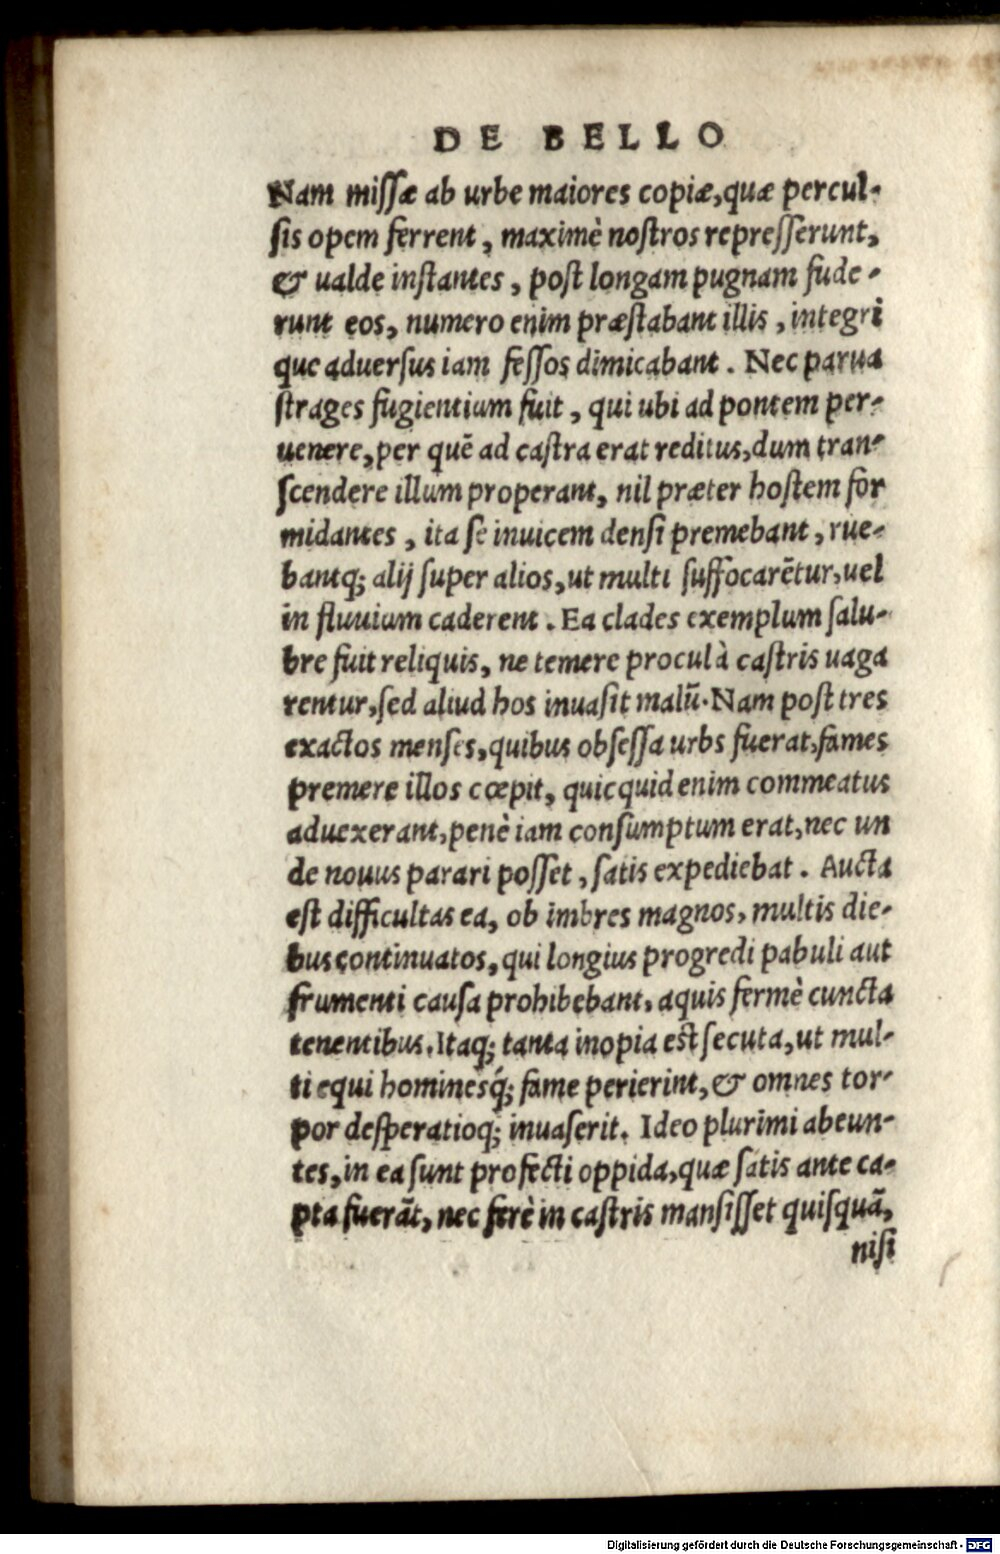 DE BELLO
Nam missæ ab urbe maiores copiæ, quæ percul-
sis opem ferrent, maximè nostros represserunt,
& ualde instantes, post longam pugnam fude-
runt eos, numero enim præstabant illis, integri
que aduersus iam fessos dimicabant. Nec parua
strages fugientium fuit, qui ubi ad pontem per-
uenere, per quē ad castra erat reditus, dum tran-
scendere illum properant, nil præter hostem for
midantes, ita se inuicem densi premebant, rue-
bantq; alij super alios, ut multi suffocarētur, uel
in fluuium caderent. Ea clades exemplum salu-
bre fuit reliquis, ne temere procul à castris uaga
rentur, sed aliud hos inuasit malū. Nam post tres
exactos menses, quibus obsessa urbs fuerat, fames
premere illos cœpit, quicquid enim commeatus
aduexerant, penè iam consumptum erat, nec un
de nouus parari posset, satis expediebat. Aucta
est difficultas ea, ob imbres magnos, multis die-
bus continuatos, qui longius progredi pabuli aut
frumenti causa prohibebant, aquis fermè cuncta
tenentibus. Itaq; tanta inopia est secuta, ut mul-
ti equi hominesq́; fame perierint, & omnes tor-
por desperatioq; inuaserit. Ideo plurimi abeun-
tes, in ea sunt profecti oppida, quæ satis ante ca-
pta fuerāt, nec ferè in castris mansisset quisquā,
nisi
Digitalisierung gefördert durch die Deutsche Forschungsgemeinschaft - DFG